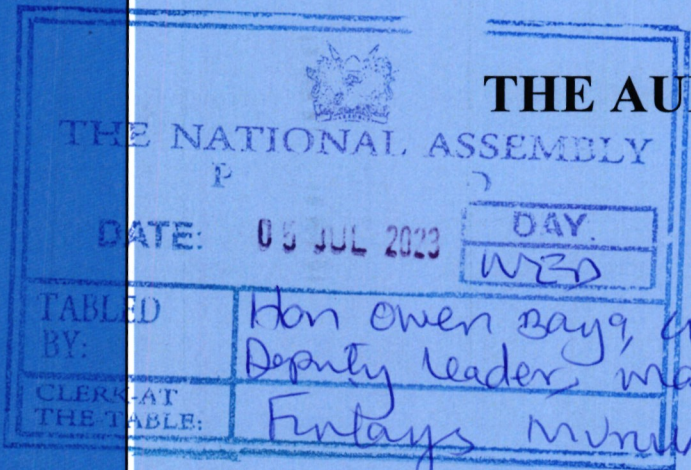 THE AU
THE NATIONAL ASSEMBLY
P
DATE: 05 JUL 2023 DAY.
WED
TABLED BY: Hon Owen Baya,
Deputy Leader,
CLERK-AT
THE-TABLE: Finlays